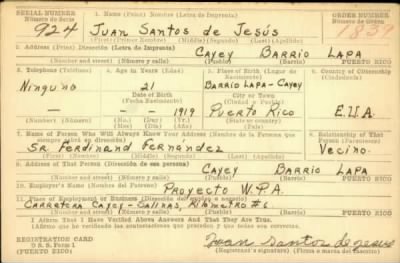 SERIAL NUMBER 1. Name (Print) Nombre (Letra de Imprenta) ORDER NUMBER
Número de Serie Número de Orden
924 Juan Santos de Jesús 1837
(First) (Primer Nombre) (Middle) (Segundo) (Last) (Apellido)
2. Address (Print) Dirección (Letra de Imprenta)
Cayey Barrio Lapa
(Number and street) (Número y calle) (Town) (Pueblo) (Barrio) PUERTO RICO
3. Telephone (Teléfono) 4. Age in Years (Edad) 5. Place of Birth (Lugar de Nacimiento) 6. Country of Citizenship
(Ciudadanía)
Ninguno 21 Barrio Lapa-Cayey
Date of Birth City or Town
(Fecha Nacimiento) (Ciudad o Pueblo)
— — 1919 Puerto Rico E.U.A.
(Mo.) (Mes) (Day) (Día) (Yr.) (Año) State or country
7. Name of Person Who Will Always Know Your Address (Nombre de la Persona que siempre sabrá su dirección) 8. Relationship of That Person (Parentesco)
Sr. Ferdinand Fernández Vecino.
(First) (Primer Nombre) (Middle) (Segundo) (Last) (Apellido)
9. Address of That Person (Dirección de esa persona)
Cayey Barrio Lapa
(Number and street) (Número y calle) (Town) (Pueblo) (Barrio) PUERTO RICO
10. Employer's Name (Nombre del Patrono)
Proyecto W.P.A.
11. Place of Employment or Business (Dirección del empleo o negocio)
Carretera Cayey-Salinas, Kilometro #6.
(Number and street) (Número y calle) (Town) (Pueblo) (Barrio) PUERTO RICO
I Affirm That I Have Verified Above Answers And That They Are True.
Afirmo que he verificado las contestaciones que preceden, y que todas son correctas.
REGISTRATION CARD Juan Santos de Jesus
D S S. Form 1
(PUERTO RICO)